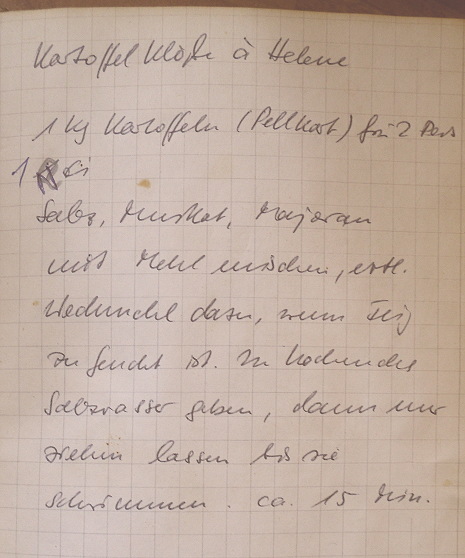 Kartoffel Klöße à Helene
1 Kg Kartoffeln (Pellkart) für 2 Pers
1 Ei
Salz, Muskat, Majoran
mit Mehl mischen, evtl.
dazu, wenn Teig
zu feucht ist. In kochendes
Salzwasser geben, dann nur
ziehen lassen bis sie
schwimmen. ca. 15 Min.